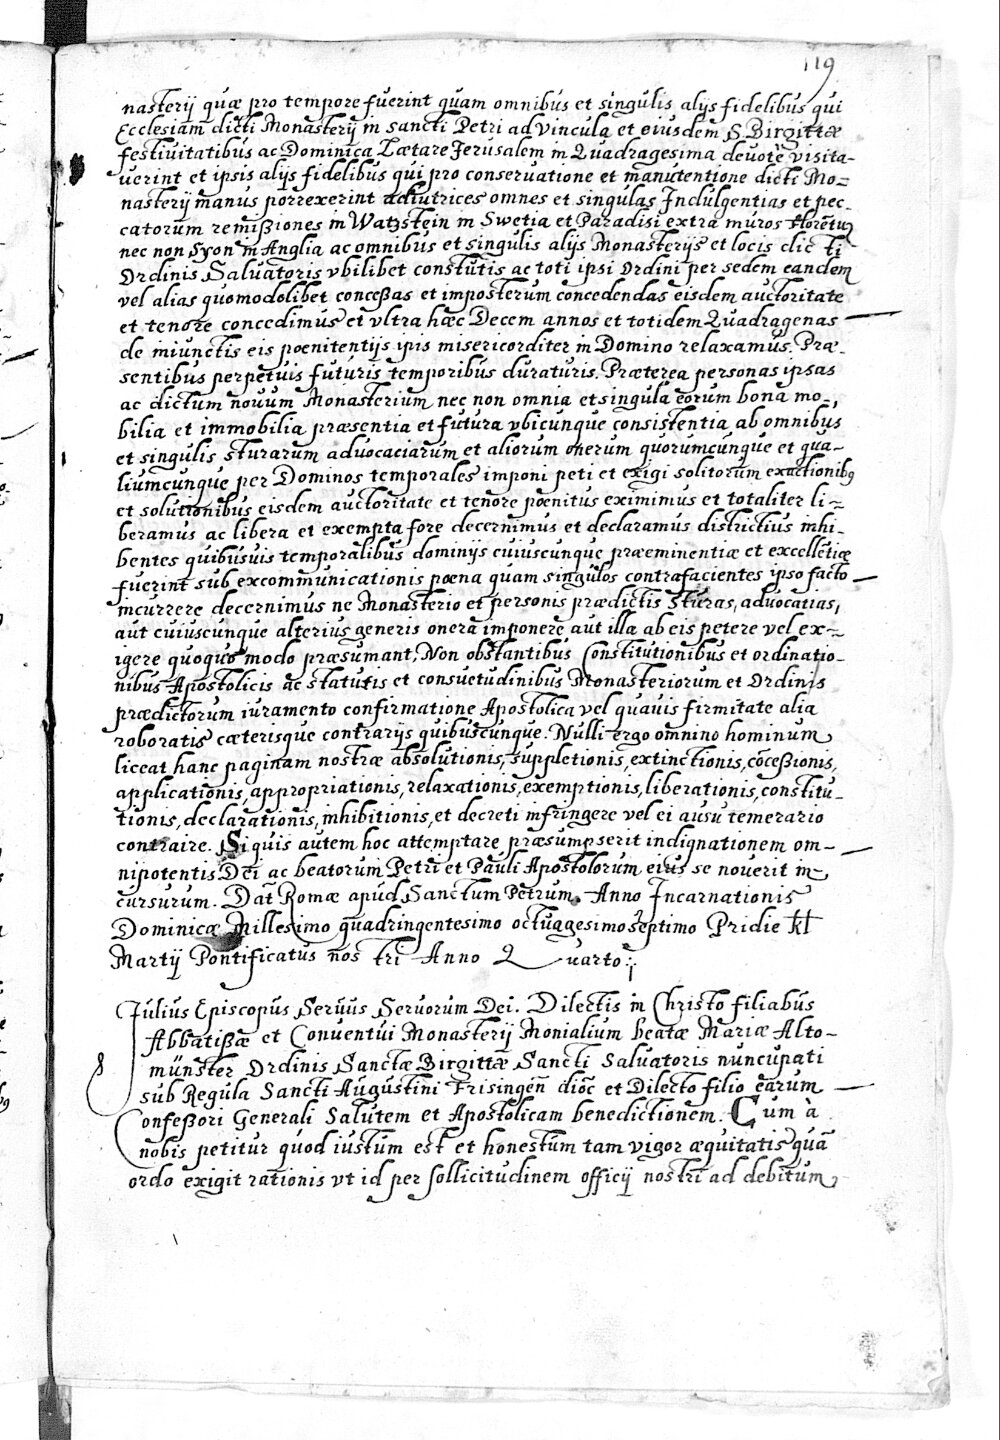 119
nasterij quæ pro tempore fuerint quam omnibus et singulis alijs fidelibus qui
Ecclesiam dicti Monasterij in Sancti Petri ad vincula et eiusdem S. Birgittæ
festiuitatibus ac Dominica Lætare Jerusalem in Quadragesima deuotè visita-
uerint et ipsis alijs fidelibus qui pro conseruatione et manutentione dicti Mo=
nasterij manus porrexerint adiutrices omnes et singulas Indulgentias et pec-
catorum remißiones in Watzstein in Swetia et Paradisi extra muros Florētin̄
nec non Syon in Anglia ac omnibus et singulis alijs Monasterijs et locis dicti
Ordinis Saluatoris vbilibet constutis ac toti ipsi Ordini per sedem eandem
vel alias quomodolibet conceßas et imposterum concedendas eisdem auctoritate
et tenore concedimus et vltra hæc Decem annos et totidem Quadragenas
de iniunctis eis pœnitentijs ipis misericorditer in Domino relaxamus. Præ-
sentibus perpetuis futuris temporibus duraturis. Præterea personas ipsas
ac dictum nouum Monasterium nec non omnia et singula eorum bona mo-,
bilia et immobilia præsentia et futura vbicunque consistentia ab omnibus
et singulis sturarum aduocaciarum et aliorum onerum quorumcunque et qua-
liumcunque per Dominos temporales imponi peti et exigi solitorum exactionibꝰ
et solutionibus eisdem auctoritate et tenore pœnitus eximimus et totaliter li-
beramus ac libera et exempta fore decernimus et declaramus districtius inhi-
bentes quibusuis temporalibus dominijs cuiuscunque præeminentiæ et excellētiæ
fuerint sub excommunicationis pœna quam singulos contrafacientes ipso facto
incurrere decernimus ne Monasterio et personis prædictis sturas, aduocatias,
aut cuiuscunque alterius generis onera imponere aut illa ab eis petere vel ex-
igere quoquo modo præsumant, Non obstantibus Constitutionibus et ordinatio-
nibus Apostolicis ac statutis et consuetudinibus Monasteriorum et Ordinis
prædictorum iuramento confirmatione Apostolica vel quauis firmitate alia
roboratis cæterisque contrarijs quibuscunque. Nulli ergo omnino hominum
liceat hanc paginam nostræ absolutionis, suppletionis, extinctionis, cōceßionis,
applicationis, appropriationis, relaxationis, exemptionis, liberationis, constitu-
tionis, declarationis, inhibitionis, et decreti infringere vel ei ausu temerario
contraire. Si quis autem hoc attemptare præsumpserit indignationem om-
nipotentis Dei ac beatorum Petri et Pauli Apostolorum eius se nouerit in-
cursurum. Dat̄ Romæ apud Sanctum Petrum. Anno Incarnationis
Dominicæ Millesimo quadringentesimo octuagesimoseptimo Pridie kl
Martij Pontificatus nostri Anno Quarto.
Julius Episcopus Seruus Seruorum Dei. Dilectis in Christo filiabus
Abbatißæ et Conuentui Monasterij Monialium beatæ Mariæ Alto-
münster Ordinis Sanctæ Birgittæ Sancti Saluatoris nuncupati
8
sub Regula Sancti Augustini Frisingen̄ dioc̄ et Dilecto filio earum
Confeßori Generali Salutem et Apostolicam benedictionem. Cum à
nobis petitur quod iustum est et honestum tam vigor æquitatis quā
ordo exigit rationis vt id per sollicitudinem officij nostri ad debitum